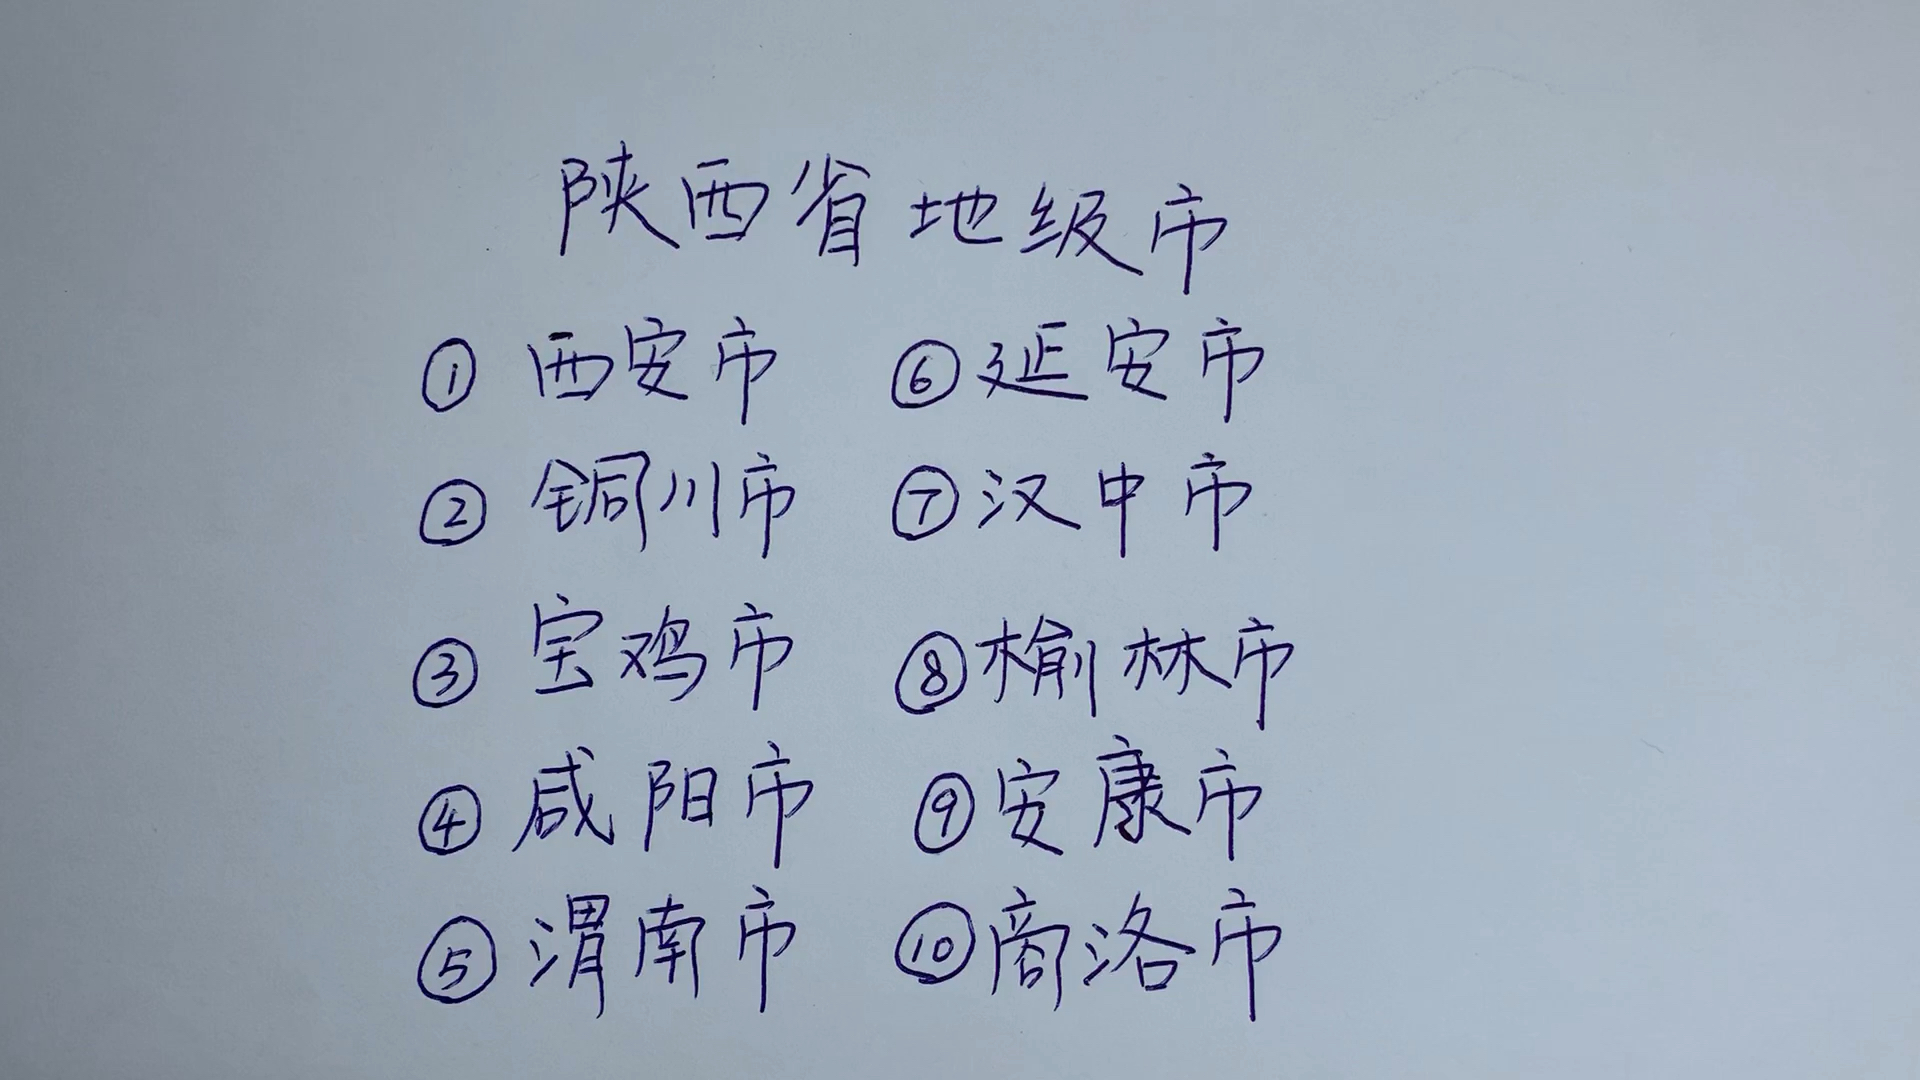 陕西省地级市
① 西安市 ⑥ 延安市
② 铜川市 ⑦ 汉中市
③ 宝鸡市 ⑧ 榆林市
④ 咸阳市 ⑨ 安康市
⑤ 渭南市 ⑩ 商洛市